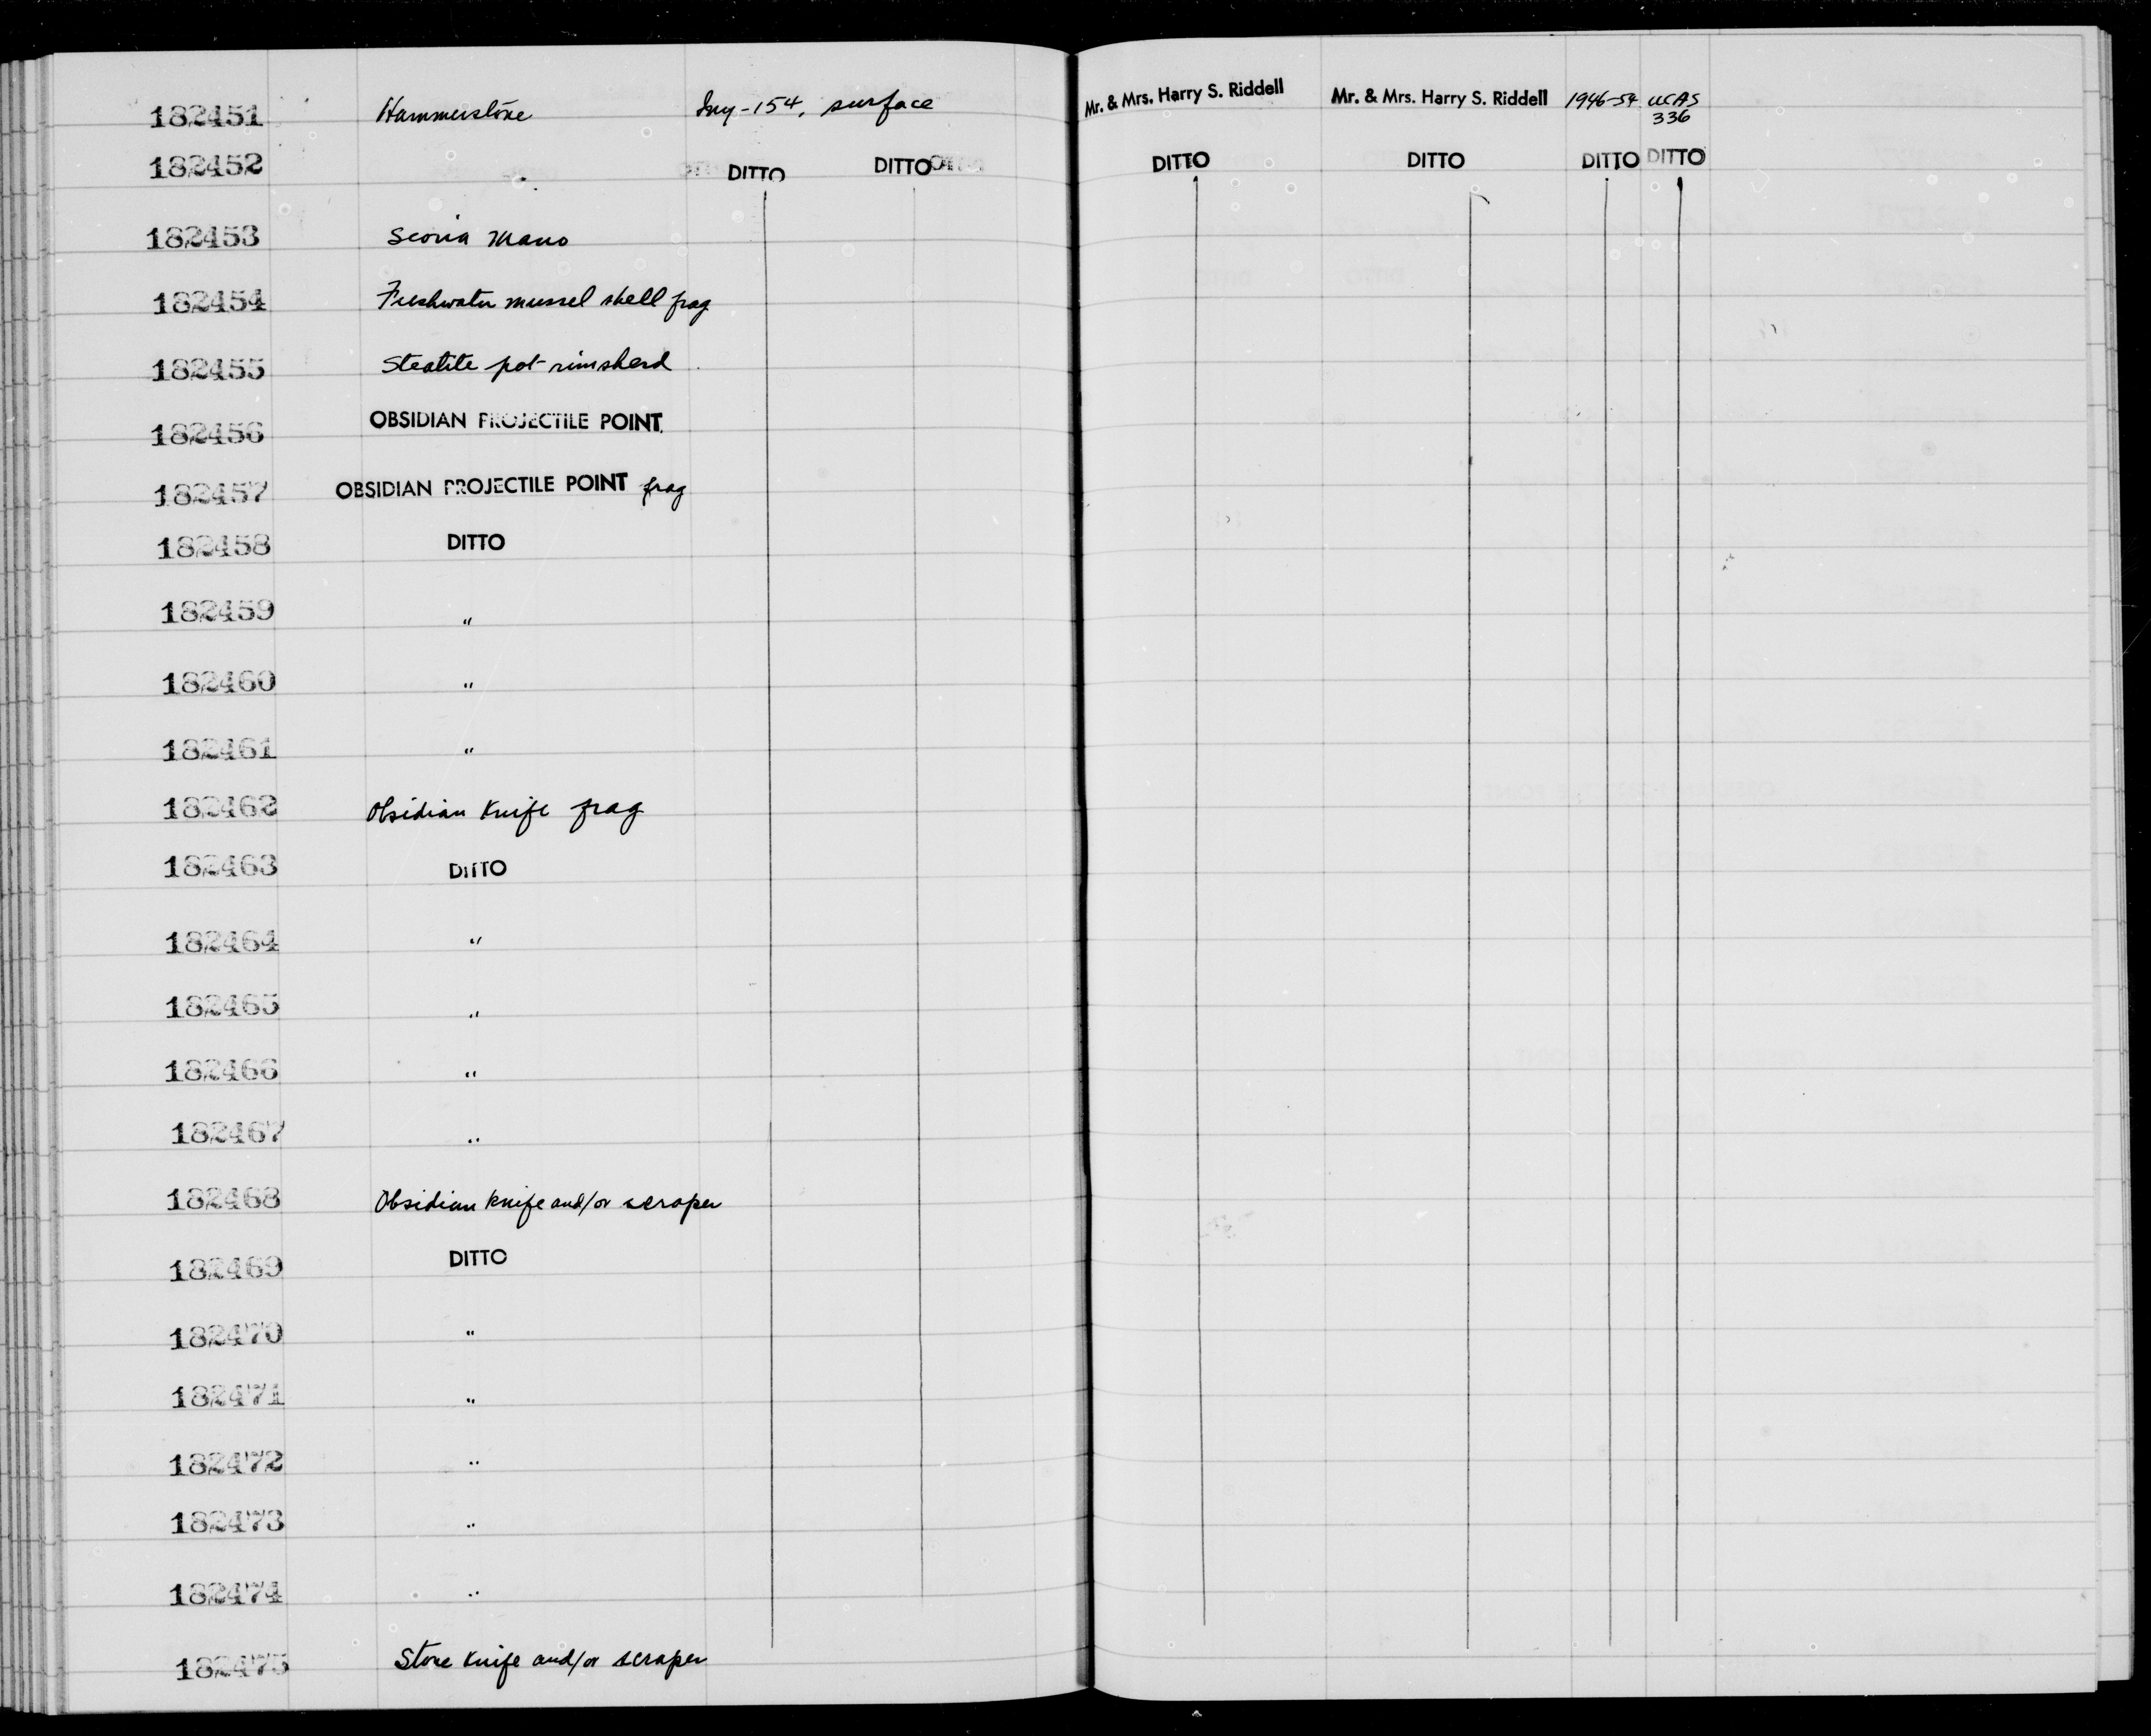 182451 Hammerstone Iny-154, surface Mr. & Mrs. Harry S. Riddell Mr. & Mrs. Harry S. Riddell 1946-54 UCAS
336
182452 " DITTO DITTO DITTO DITTO DITTO DITTO
182453 Scoria Mano
182454 Freshwater mussel shell frag
182455 Steatite pot rimsherd
182456 OBSIDIAN PROJECTILE POINT
182457 OBSIDIAN PROJECTILE POINT frag
182458 DITTO
182459 "
182460 "
182461 "
182462 Obsidian Knife frag
182463 DITTO
182464 "
182465 "
182466 "
182467 "
182468 Obsidian knife and/or scraper
182469 DITTO
182470 "
182471 "
182472 "
182473 "
182474 "
182475 Stone Knife and/or scraper